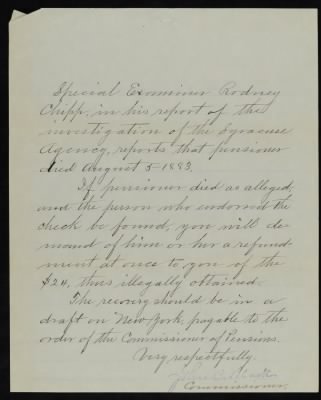 Special Examiner Rodney
Chipp, in his report of the
investigation of the Syracuse
Agency, reports that pensioner
died August 5 1883.
If pensioner died as alleged,
and the person who endorsed the
check be found, you will de-
mand of him or her a refund-
ment at once to you of the
$24, thus illegally obtained.
The recovery should be in a
draft on New York, payable to the
order of the Commissioner of Pensions.
Very respectfully,
Commissioner.